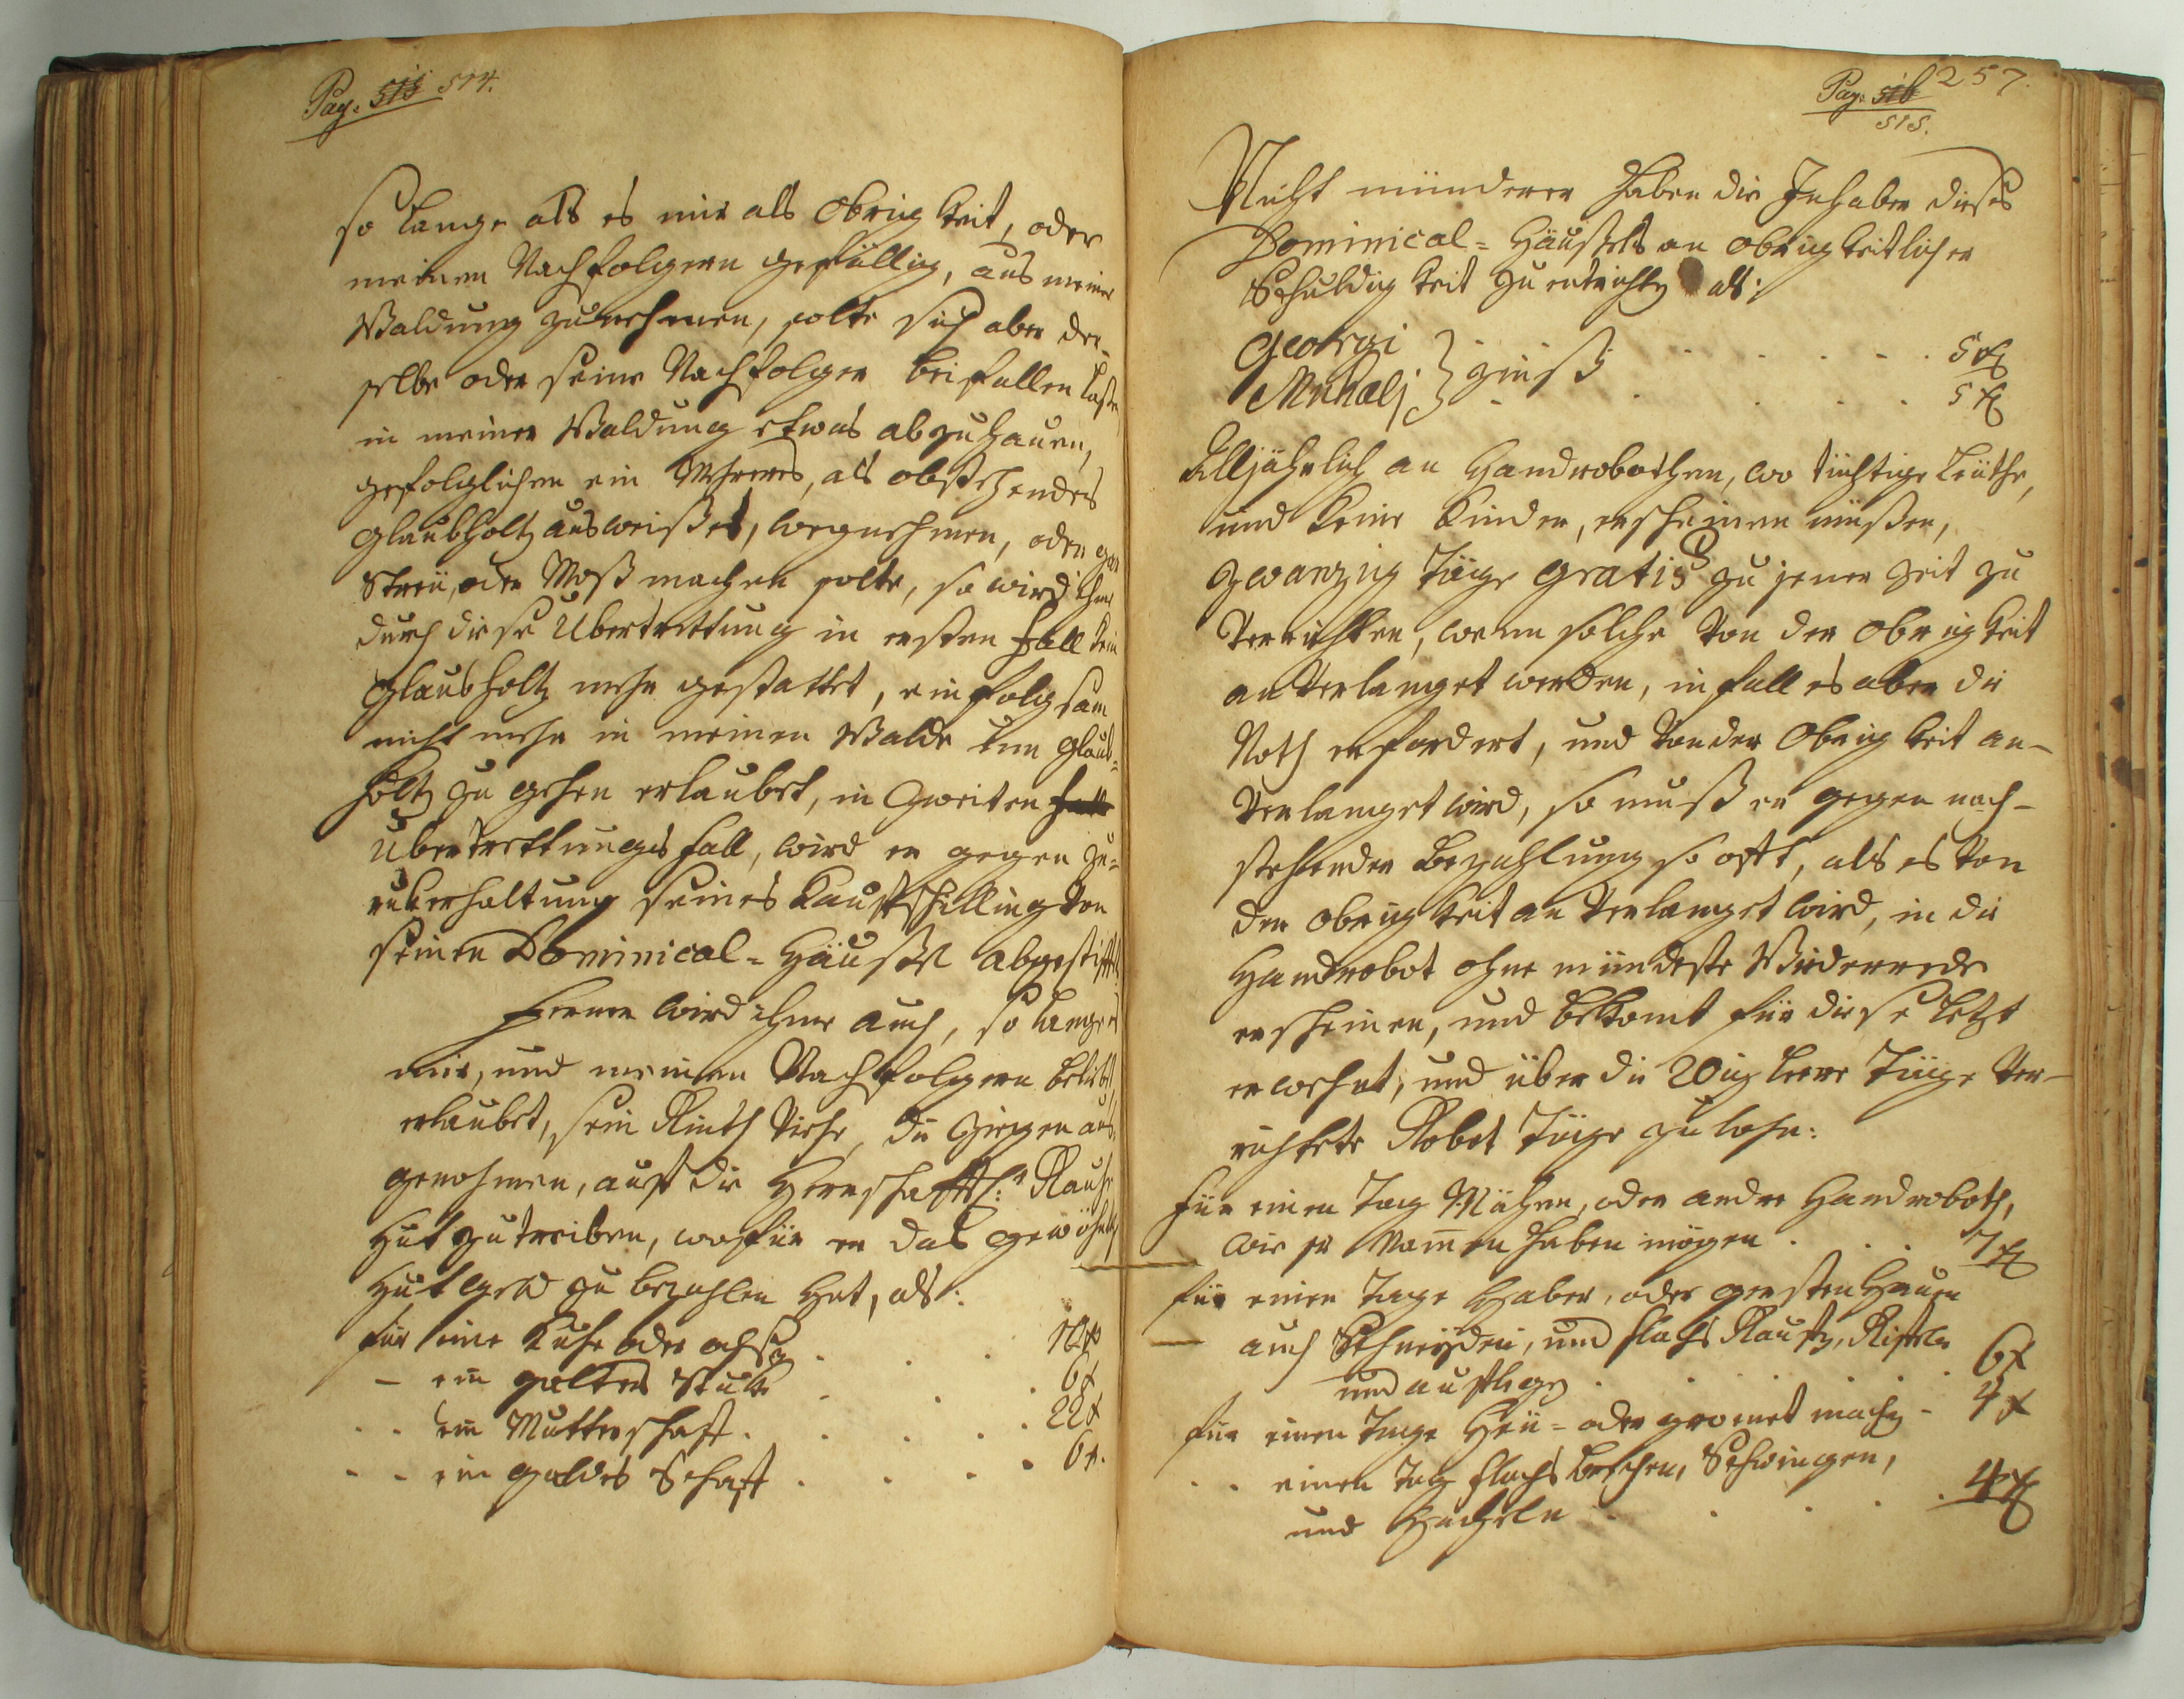 Pag. 515 514.
so lange als es mir als Obrigkeit, oder
meinen Nachfolgern gefällig, aus meiner
Waldung zunehmen, solte sich aber der-
selbe oder seine Nachfolger beifallen lassen
in meiner Waldung etwas abzuhauen,
gefolglichen ein Mehreres, als obstehendes
Glaubholtz ausweißet, wegnehmen, oder gar
Streü, oder Moß machen solte, so wird ihme
durch diese Ubertrettung in ersten Fall kein
Glaubholtz mehr gestattet, einfolgsam
nicht mehr in meinen Walde um Glaub-
holtz zu gehen erlaubet, in Zweiten Fall
Ubertrettungs Fall, wird er gegen Zu-
rukerhaltung seines Kaufschilling von
seinen Dominical-Häußl abgestifft.
Ferner wird ihme auch, so lange es
mir, und meinen Nachfolgern beliebt,
erlaubet, sein Rinth Viehe, die Ziegen aus-
genohmen, auf die Herrschafftl: Rauhe
Hut zutreiben, wofür er das gewöhnl:
Hutgeld zu bezahlen hat, als:
für eine Kuhe oder ochsen . . . 12 x
- ein galtes Stuk . . . 6 x
. . ein Mutterschaf . . . . 22 x
. . ein galdes Schaf . . . . 6 x.
Pag. 516 257.
515.
Nicht münderer haben die Inhaber dieses
Dominical-Häußels an Obrigkeitlicher
Schuldigkeit zu entrichten als:
Georgi } Zinß . . . . . . 5 x
Michaelj } . . . . . 5 x
Alljährlich an Handrobothen, wo tüchtige Leüthe,
und keine Kinder, erscheinen müßen,
Zwanzig Täge gratis zu jener Zeit zu
verrichten, wenn solche von der Obrigkeit
anverlanget werden, in fall es aber die
Noth erfordert, und von der Obrigkeit an-
verlanget wird, so muß er gegen nach-
stehender Bezahlung so offt, als es von
der Obrigkeit anverlanget wird, in die
Handrobot ohne mündeste Widerrede
erscheinen, und bekomt für diese letzt
erwehnt, und über die 20ig leere Täge ver-
richtete Robot Täge zu lohn:
Für einen Tag Mähen, oder andre Handroboth,
wie sie Namen haben mögen . . . 7 x
für einen Tage Haber, oder gersten Hauen
auch Schneyden, und flachs Rauffen, Rifteln
und auflegen . . . . . . 6 x
für einen Tage Heü- oder gromet machen - 4 x
. . einen Tag flachs brechen, Schwingen,
und Hacheln . . . . . 4 x